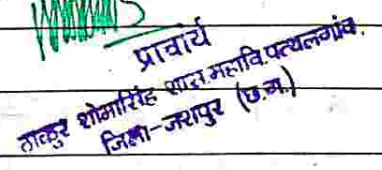 प्राचार्य
ठाकुर शोभासिंह शास. महावि. पत्थलगांव,
जिला-जशपुर (छ.ग.)